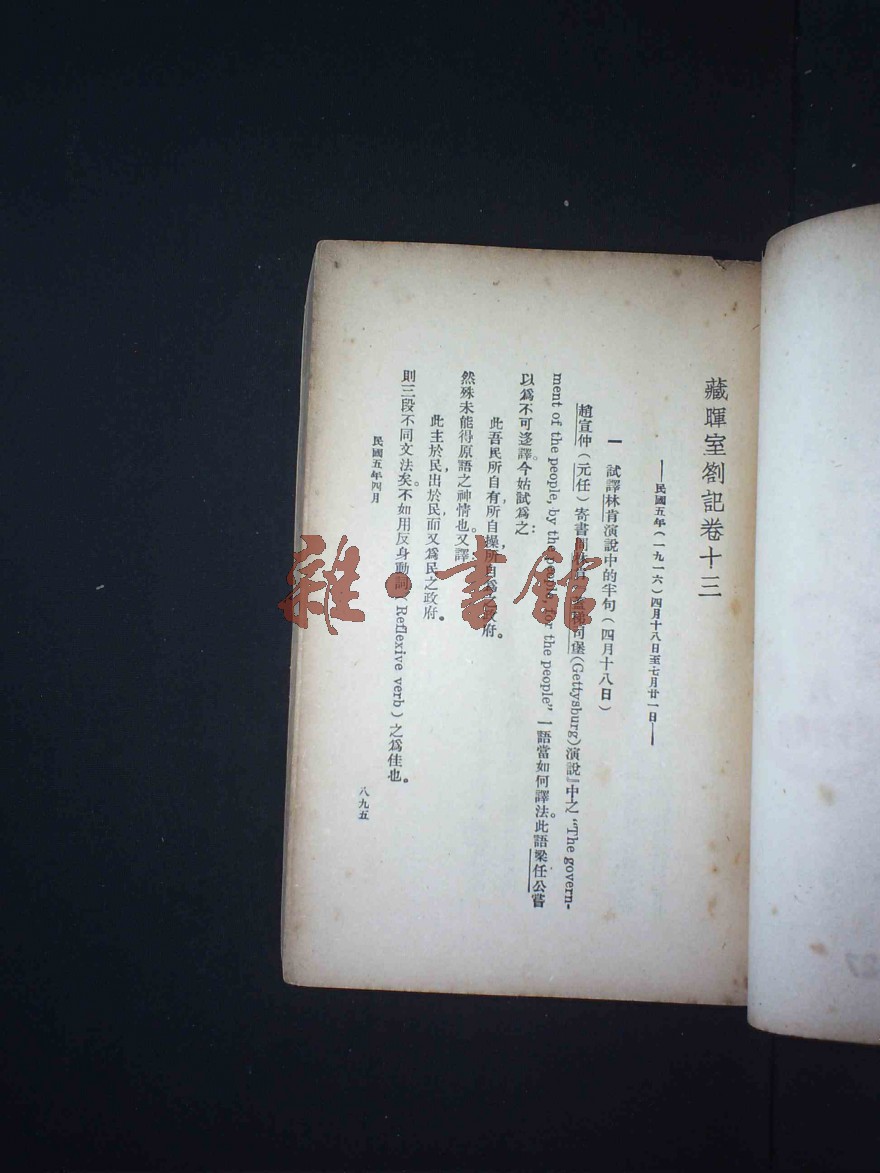 藏暉室劄記卷十三
——民國五年（一九一六）四月十八日至七月廿一日——
一　試譯林肯演說中的半句（四月十八日）
趙宣仲（元任）寄書問林肯『葛梯司堡(Gettysburg)演說』中之“The govern-
ment of the people, by the people, for the people”一語當如何譯法。此語梁任公嘗
以為不可迻譯。今姑試為之：
此吾民所自有，所自操，所自為之政府。
然殊未能得原語之神情也。又譯：
此主於民，出於民，而又為民之政府。
則三段不同文法矣。不如用反身動詞（Reflexive verb）之為佳也。
民國五年四月
八九五
雜·書館
27